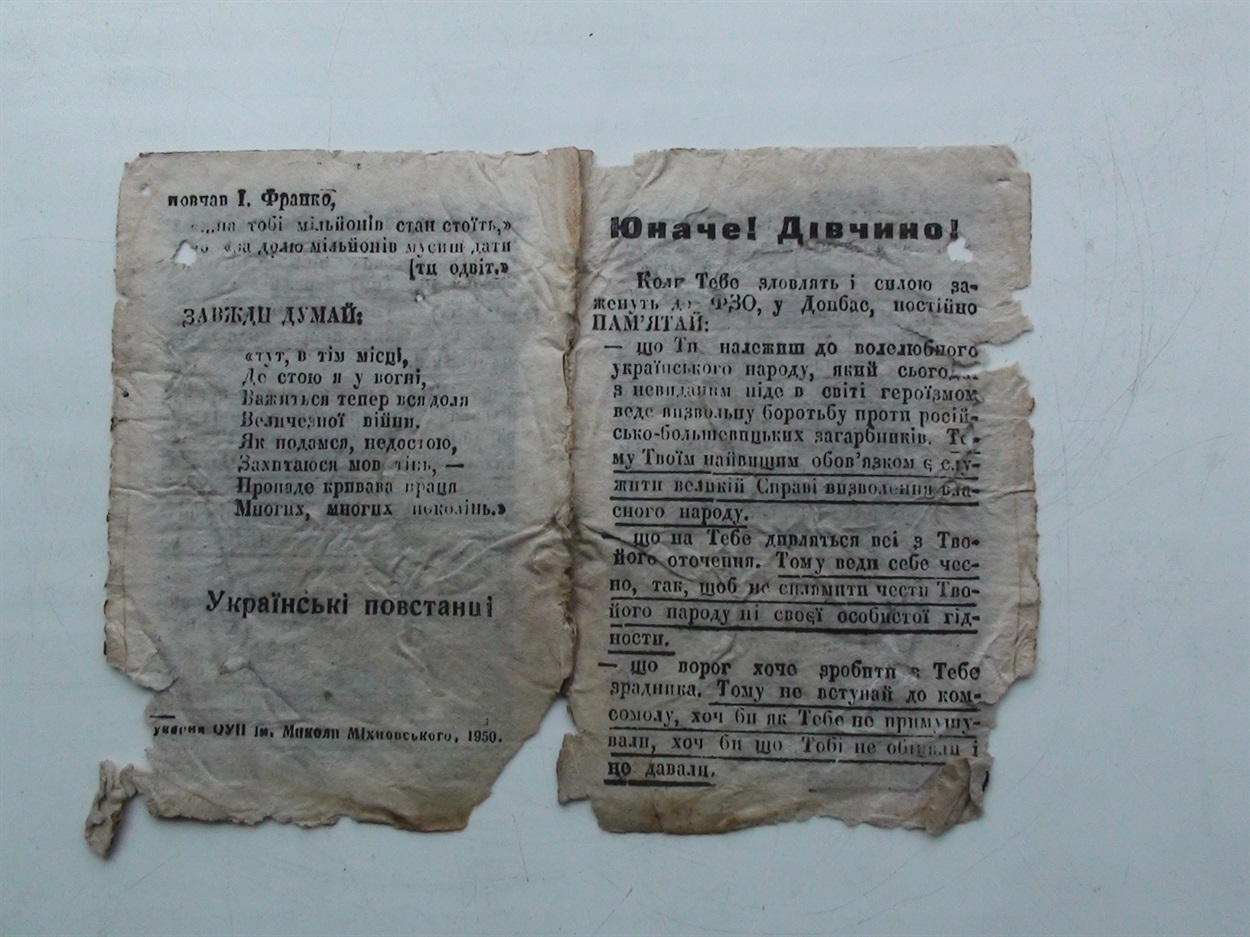 повчав І. Франко,
«...на тобі мільйонів стан стоїть,»
«за долю мільйонів мусиш дати
[ти одвіт.»
ЗАВЖДИ ДУМАЙ:
«тут, в тім місці,
Де стою я у вогні,
Важиться тепер вся доля
Величезної війни.
Як подамся, недостою,
Захитаюся мов тінь, —
Пропаде кривава праця
Многих, многих поколінь.»
Українські повстанці
ОУН ім. Миколи Міхновського, 1950.
Юначе! Дівчино!
Коли Тебе зловлять і силою за-
женуть до ФЗО, у Донбас, постійно
ПАМ'ЯТАЙ:
— що Ти належиш до волелюбного
українського народу, який сьогодні
з невиданим ніде в світі героїзмом
веде визвольну боротьбу проти росій-
сько-большевицьких загарбників. То-
му Твоїм найвищим обов'язком є слу-
жити великій Справі визволення вла-
сного народу.
— що на Тебе дивляться всі з Тво-
його оточення. Тому веди себе чес-
но, так, щоб не сплямити чести Тво-
його народу ні своєї особистої гід-
ности.
— що ворог хоче зробити з Тебе
зрадника. Тому не вступай до ком-
сомолу, хоч би як Тебе не примушу-
вали, хоч би що Тобі не обіцяли і
не давали.